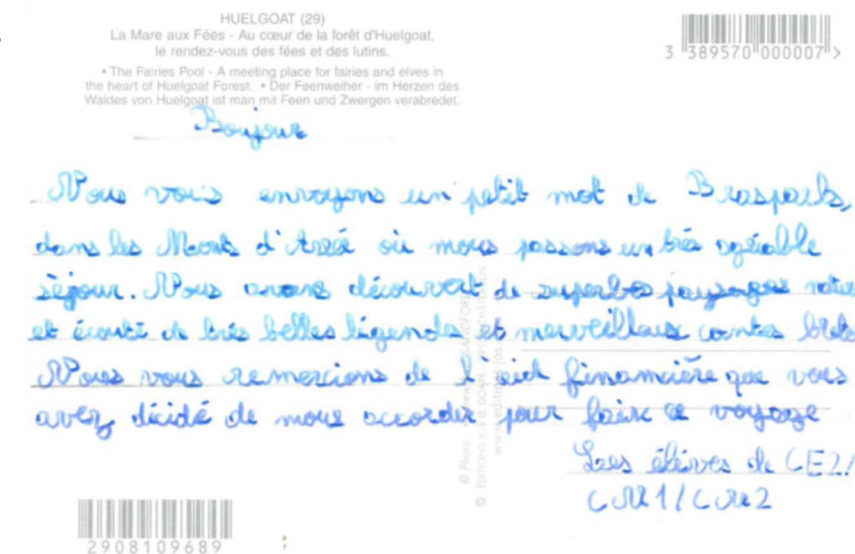 HUELGOAT (29)
La Mare aux Fées - Au cœur de la forêt d'Huelgoat,
le rendez-vous des fées et des lutins.
• The Fairies Pool - A meeting place for fairies and elves in
the heart of Huelgoat Forest. • Der Feenweiher - im Herzen des
Waldes von Huelgoat ist man mit Feen und Zwergen verabredet.
3 389570 000007 >
Boujour
Nous vous envoyons un petit mot de Brasparts,
dans les Monts d'Areé où nous passons un très agréable
séjour. Nous avons découvert de superbes paysages natu
et écouté de très belles légendes et merveilleux contes breto
Nous vous remercions de l'aid financière que vous
avez décidé de nous accorder pour faire ce voyage
Les élèves de CE2/
CM1/CM2
© Photo
© EDITIONS JOS LE DOARE
2908109689